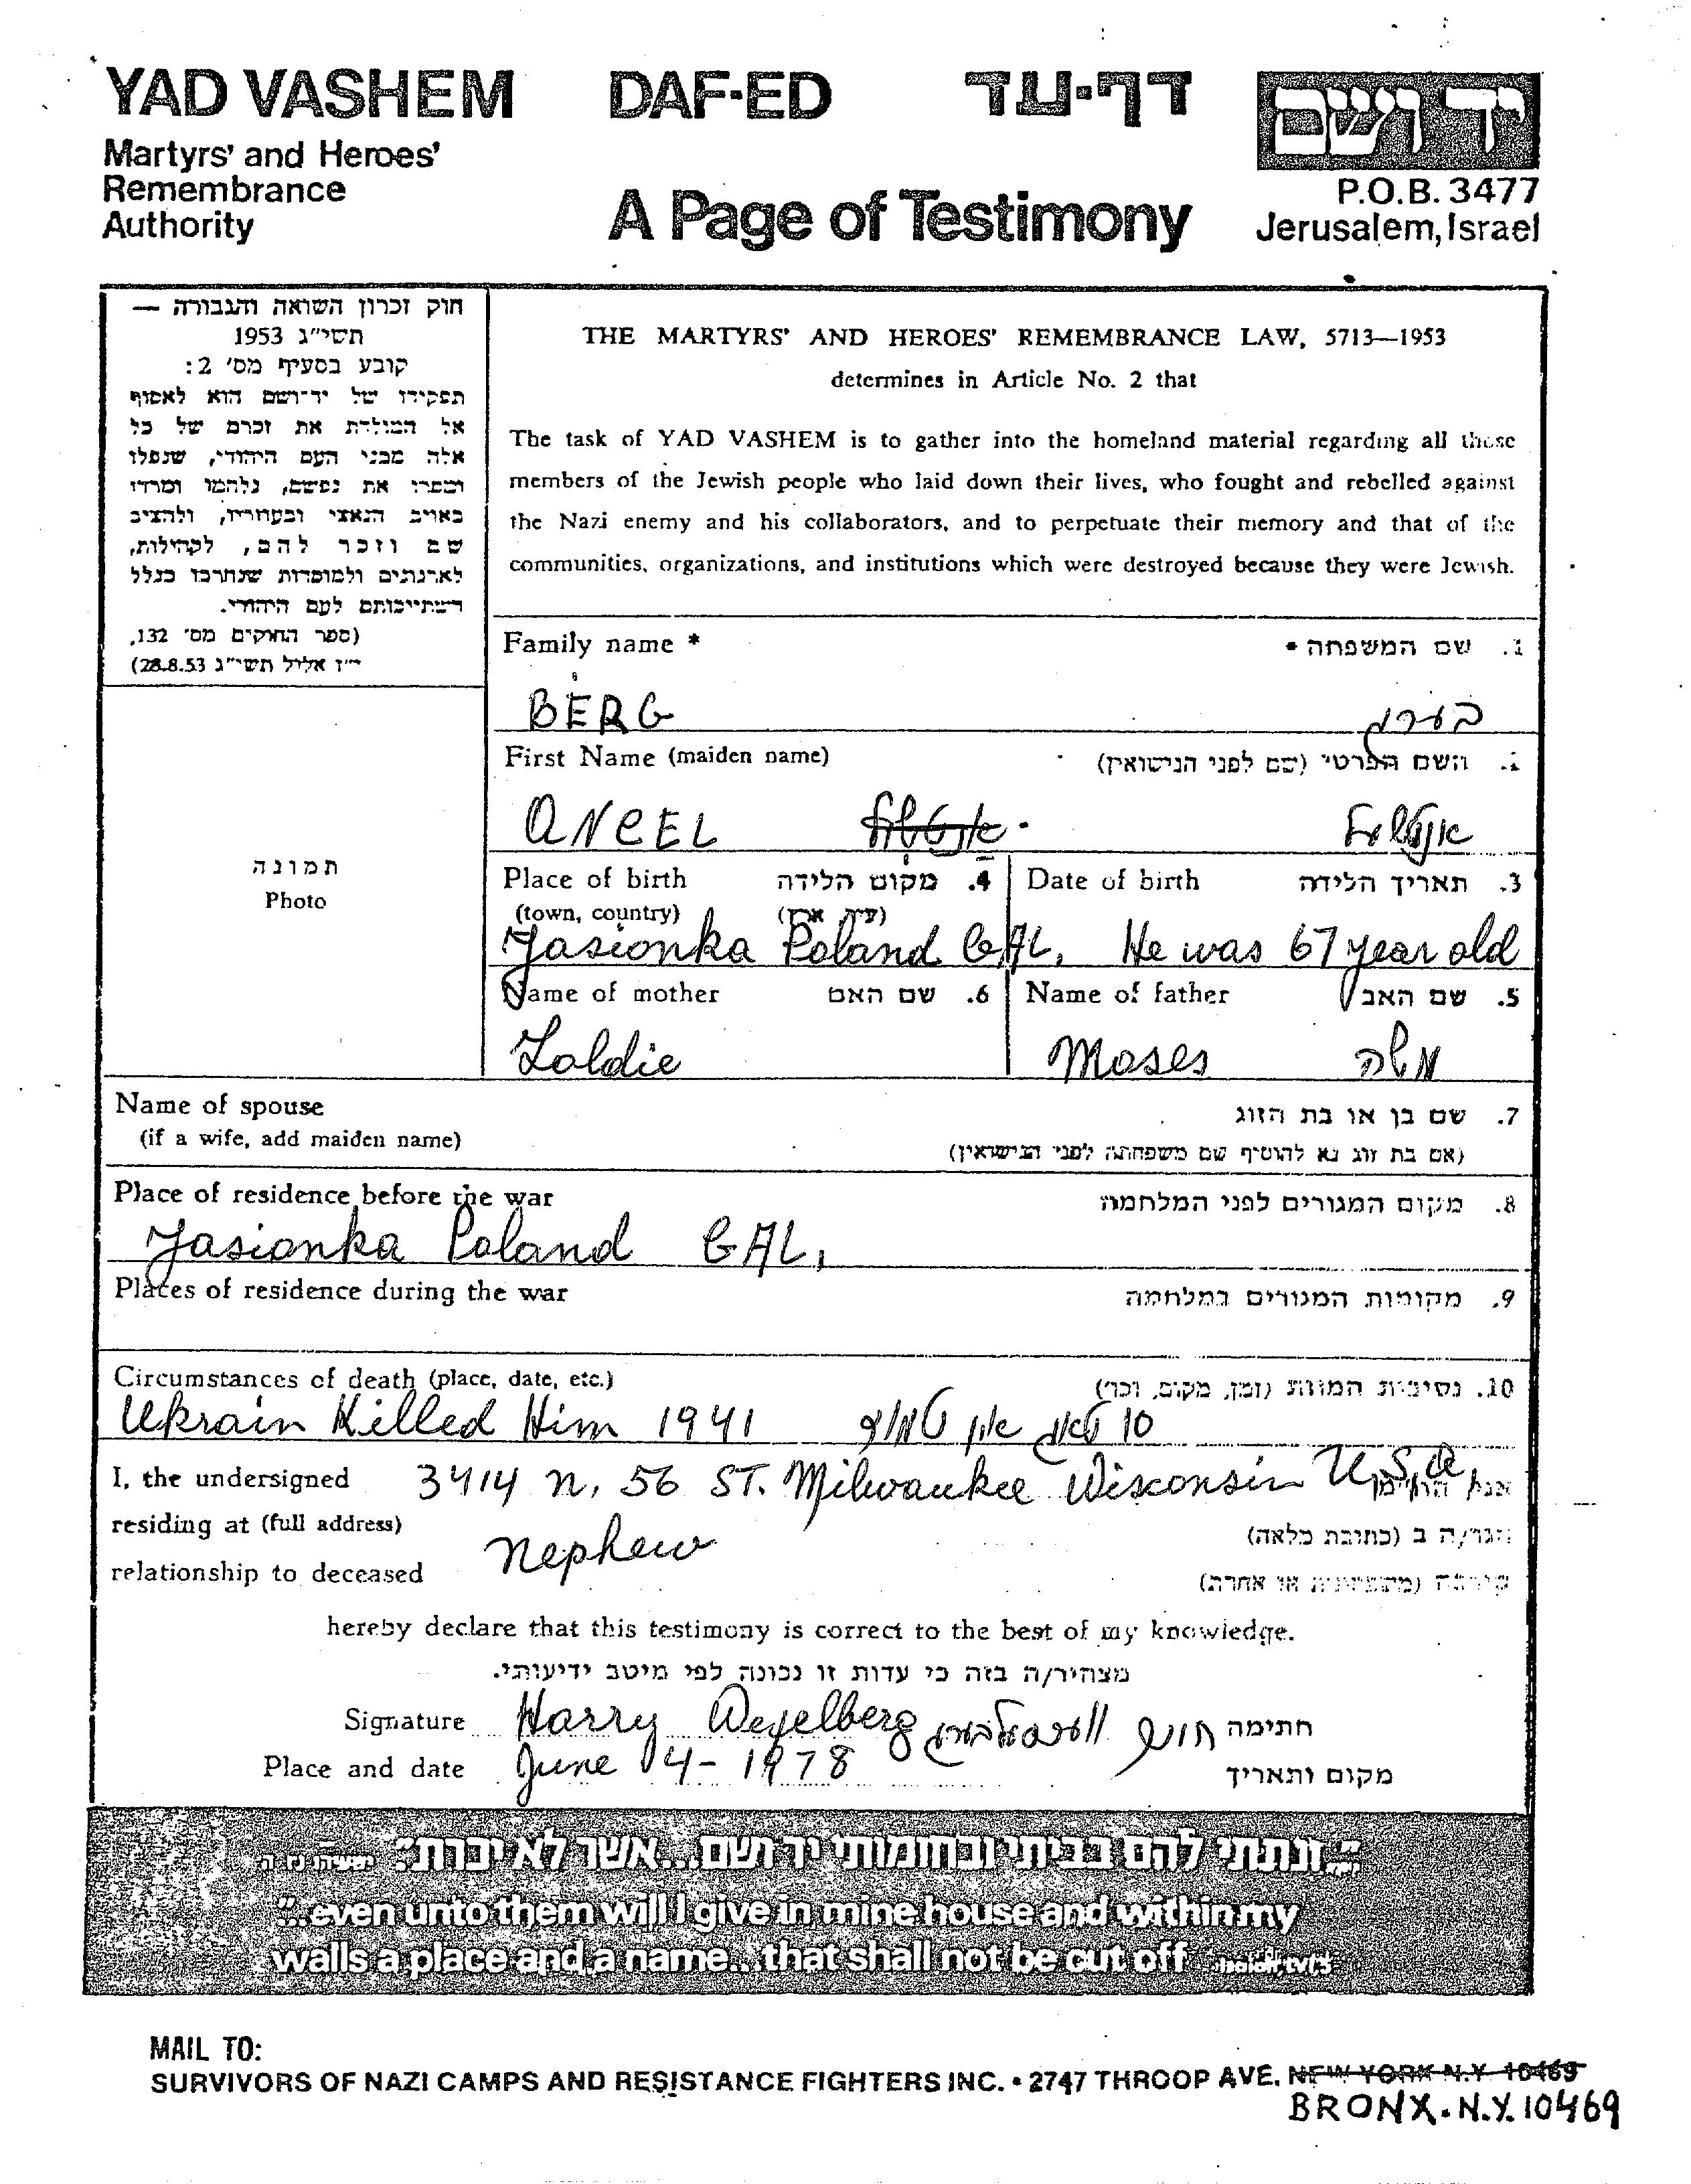 YAD VASHEM DAF-ED דף-עד יד ושם
Martyrs' and Heroes'
Remembrance
Authority
A Page of Testimony
P.O.B. 3477
Jerusalem, Israel
חוק זכרון השואה והגבורה —
תשי"ג 1953
קובע בסעיף מס' 2:
תפקידו של יד-ושם הוא לאסוף
אל המולדת את זכרם של כל
אלה מבני העם היהודי, שנפלו
ומסרו את נפשם, נלחמו ומרדו
באויב הנאצי ובעוזריו, ולהציב
שם וזכר להם, לקהילות,
לארגונים ולמוסדות שנחרבו בגלל
השתייכותם לעם היהודי.
(ספר החוקים מס' 132,
י"ז אלול תשי"ג 28.8.53)
THE MARTYRS' AND HEROES' REMEMBRANCE LAW, 5713—1953
determines in Article No. 2 that
The task of YAD VASHEM is to gather into the homeland material regarding all those
members of the Jewish people who laid down their lives, who fought and rebelled against
the Nazi enemy and his collaborators, and to perpetuate their memory and that of the
communities, organizations, and institutions which were destroyed because they were Jewish.
תמונה
Photo
Family name * 1. שם המשפחה *
BERG בערג
First Name (maiden name) השם הפרטי (שם לפני הנישואין)
ANCEL
Place of birth 4. מקום הלידה Date of birth 3. תאריך הלידה
(town, country) (עיר, ארץ)
Jasionka Poland GAL. He was 67 year old
Name of mother 6. שם האם Name of father 5. שם האב
Goldie Moses משה
Name of spouse 7. שם בן או בת הזוג
(if a wife, add maiden name) (אם בת זוג נא להוסיף שם משפחתה לפני הנישואין)
Place of residence before the war 8. מקום המגורים לפני המלחמה
Jasionka Poland GAL,
Places of residence during the war 9. מקומות המגורים במלחמה
Circumstances of death (place, date, etc.) 10. נסיבות המוות (זמן, מקום, וכו')
Ukrain Killed Him 1941 10 טאג אין תמוז
I, the undersigned 3414 N. 56 ST. Milwaukee Wisconsin U,S,A, אני, הח"מ
residing at (full address) הגר/ה ב (כתובת מלאה)
relationship to deceased Nephew קירבה (משפחתית או אחרת)
hereby declare that this testimony is correct to the best of my knowledge.
מצהיר/ה בזה כי עדות זו נכונה לפי מיטב ידיעותי.
Signature Harry Weselberg חתימה
Place and date June 4 - 1978 מקום ותאריך
"...ונתתי להם בביתי ובחומותי יד ושם...אשר לא יכרת" ישעיהו נו ה
"...even unto them will I give in mine house and within my
walls a place and a name...that shall not be cut off
MAIL TO:
SURVIVORS OF NAZI CAMPS AND RESISTANCE FIGHTERS INC. • 2747 THROOP AVE. NEW YORK N.Y. 10469
BRONX. N.Y. 10469